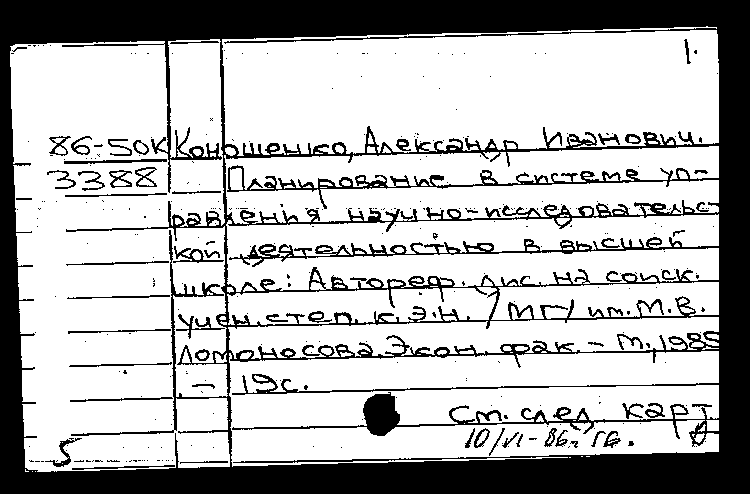 1.
86-50к Коношенко, Александр Иванович.
3388 Планирование в системе уп-
равления научно-исследовательс-
кой деятельностью в высшей
школе: Автореф. дис. на соиск.
учен. степ. к.э.н. / МГУ им. М.В.
Ломоносова. Экон. фак. – М., 1985
. – 19 с.
См. след. карт.
10/VI-86г.
5